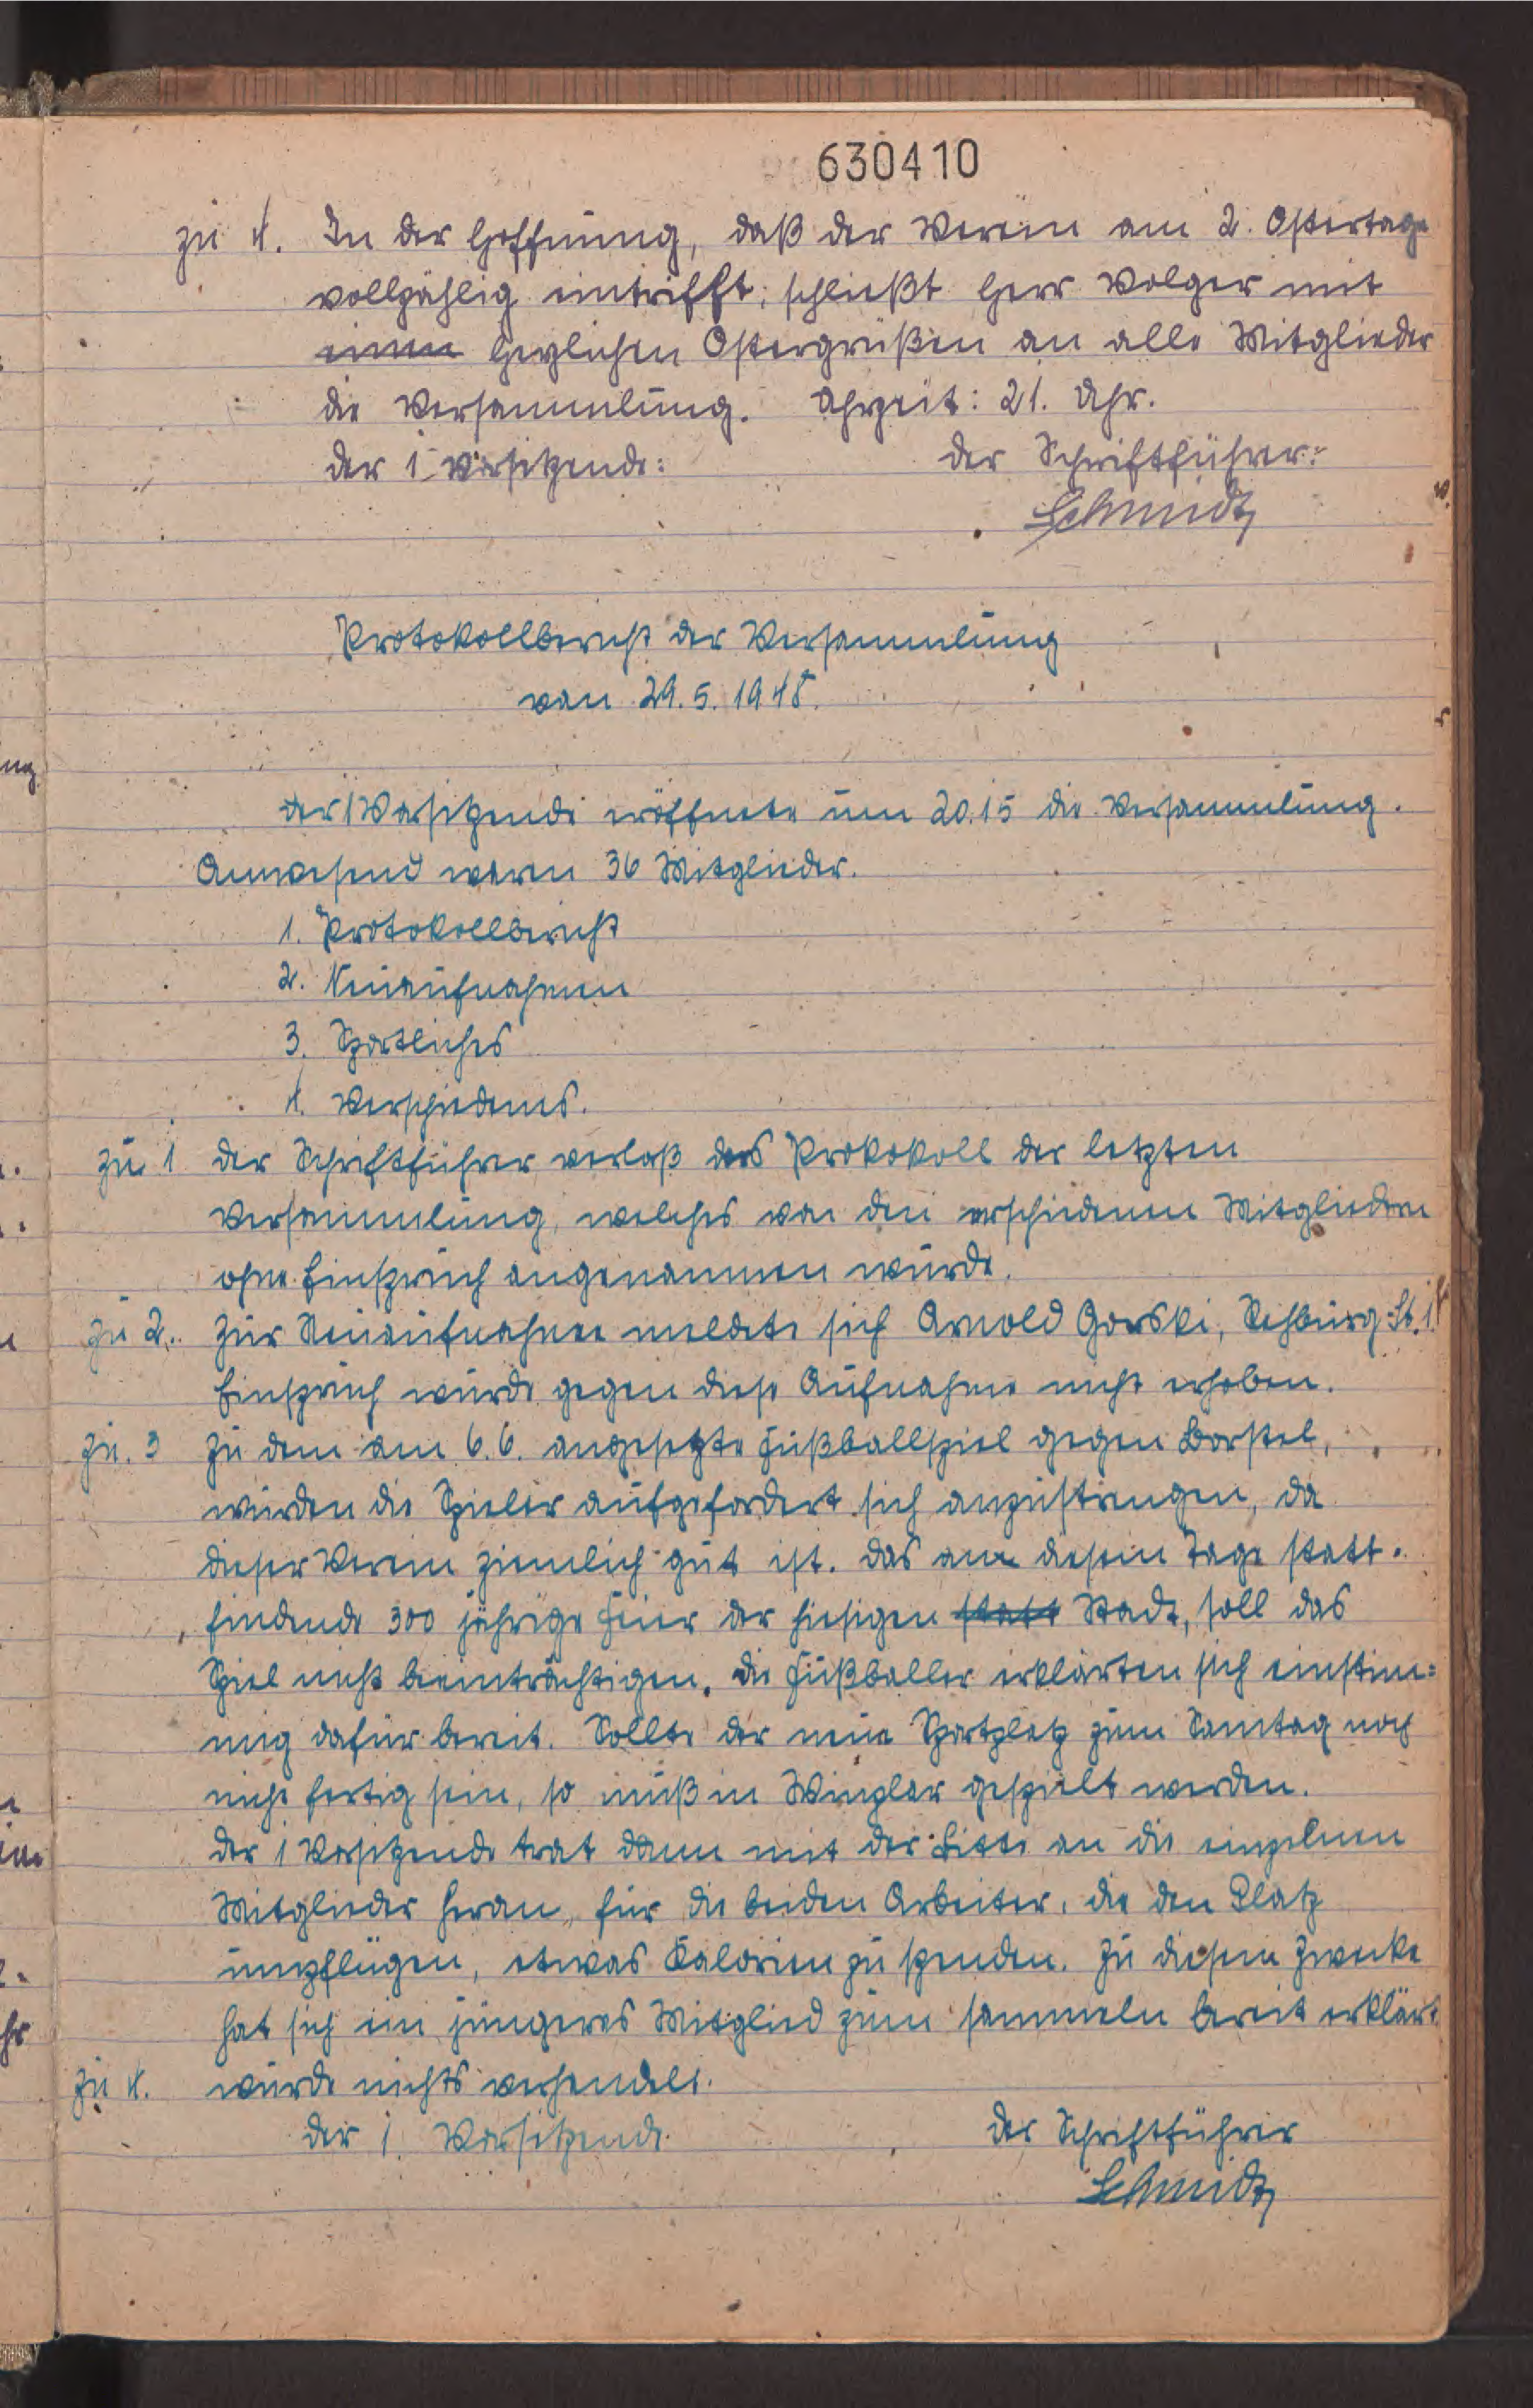 630410
zu 4. In der Hoffnung, daß der Verein am 2. Ostertage
vollzählig eintrifft, schließt Herr Volger mit
einen herzlichen Ostergrüßen an alle Mitglieder
die Versammlung. Uhrzeit: 21. Uhr.
der 1. Vorsitzende: der Schriftführer:
Schmidt
Protokollbericht der Versammlung
von 29.5.1948.
der 1 Vorsitzende eröffnete um 20.15 die Versammlung.
Anwesend waren 36 Mitglieder.
1. Protokollbericht
2. Neuaufnahmen
3. Sportliches
4. Verschiedenes.
zu 1 der Schriftführer verlaß das Prokokoll der letzten
Versammlung, welches von den erschienenen Mitgliedern
ohne Einspruch angenommen wurde.
zu 2. Zur Neuaufnahme meldete sich Arnold Gorski, Rehburg St.
Einspruch wurde gegen diese Aufnahme nicht erhoben.
zu. 3 Zu dem am 6.6. angesetzte Fußballspiel gegen Borstel,
wurden die Spieler aufgefordert sich anzustrengen, da
dieser Verein ziemlich gut ist. das am diesem Tage statt-
findende 300 jährige Feier der hiesigen statt Stadt, soll das
Spiel nicht beeinträchtigen. die Fußballer erklärten sich einstim=
mig dafür bereit. Sollte der neue Sportplatz zum Sonntag noch
nicht fertig sein, so muß in Winzlar gespielt werden.
der 1 Vorsitzende trat dann mit der Bitte an die einzelnen
Mitglieder heran, für die beiden Arbeiter, die den Platz
umpflügen, etwas Kalorien zu spenden. Zu diesem Zwecke
hat sich ein jüngeres Mitglied zum sammeln bereit erklärt
zu 4. wurde nichts verhandelt.
der 1. Vorsitzende der Schriftführer
Schmidt